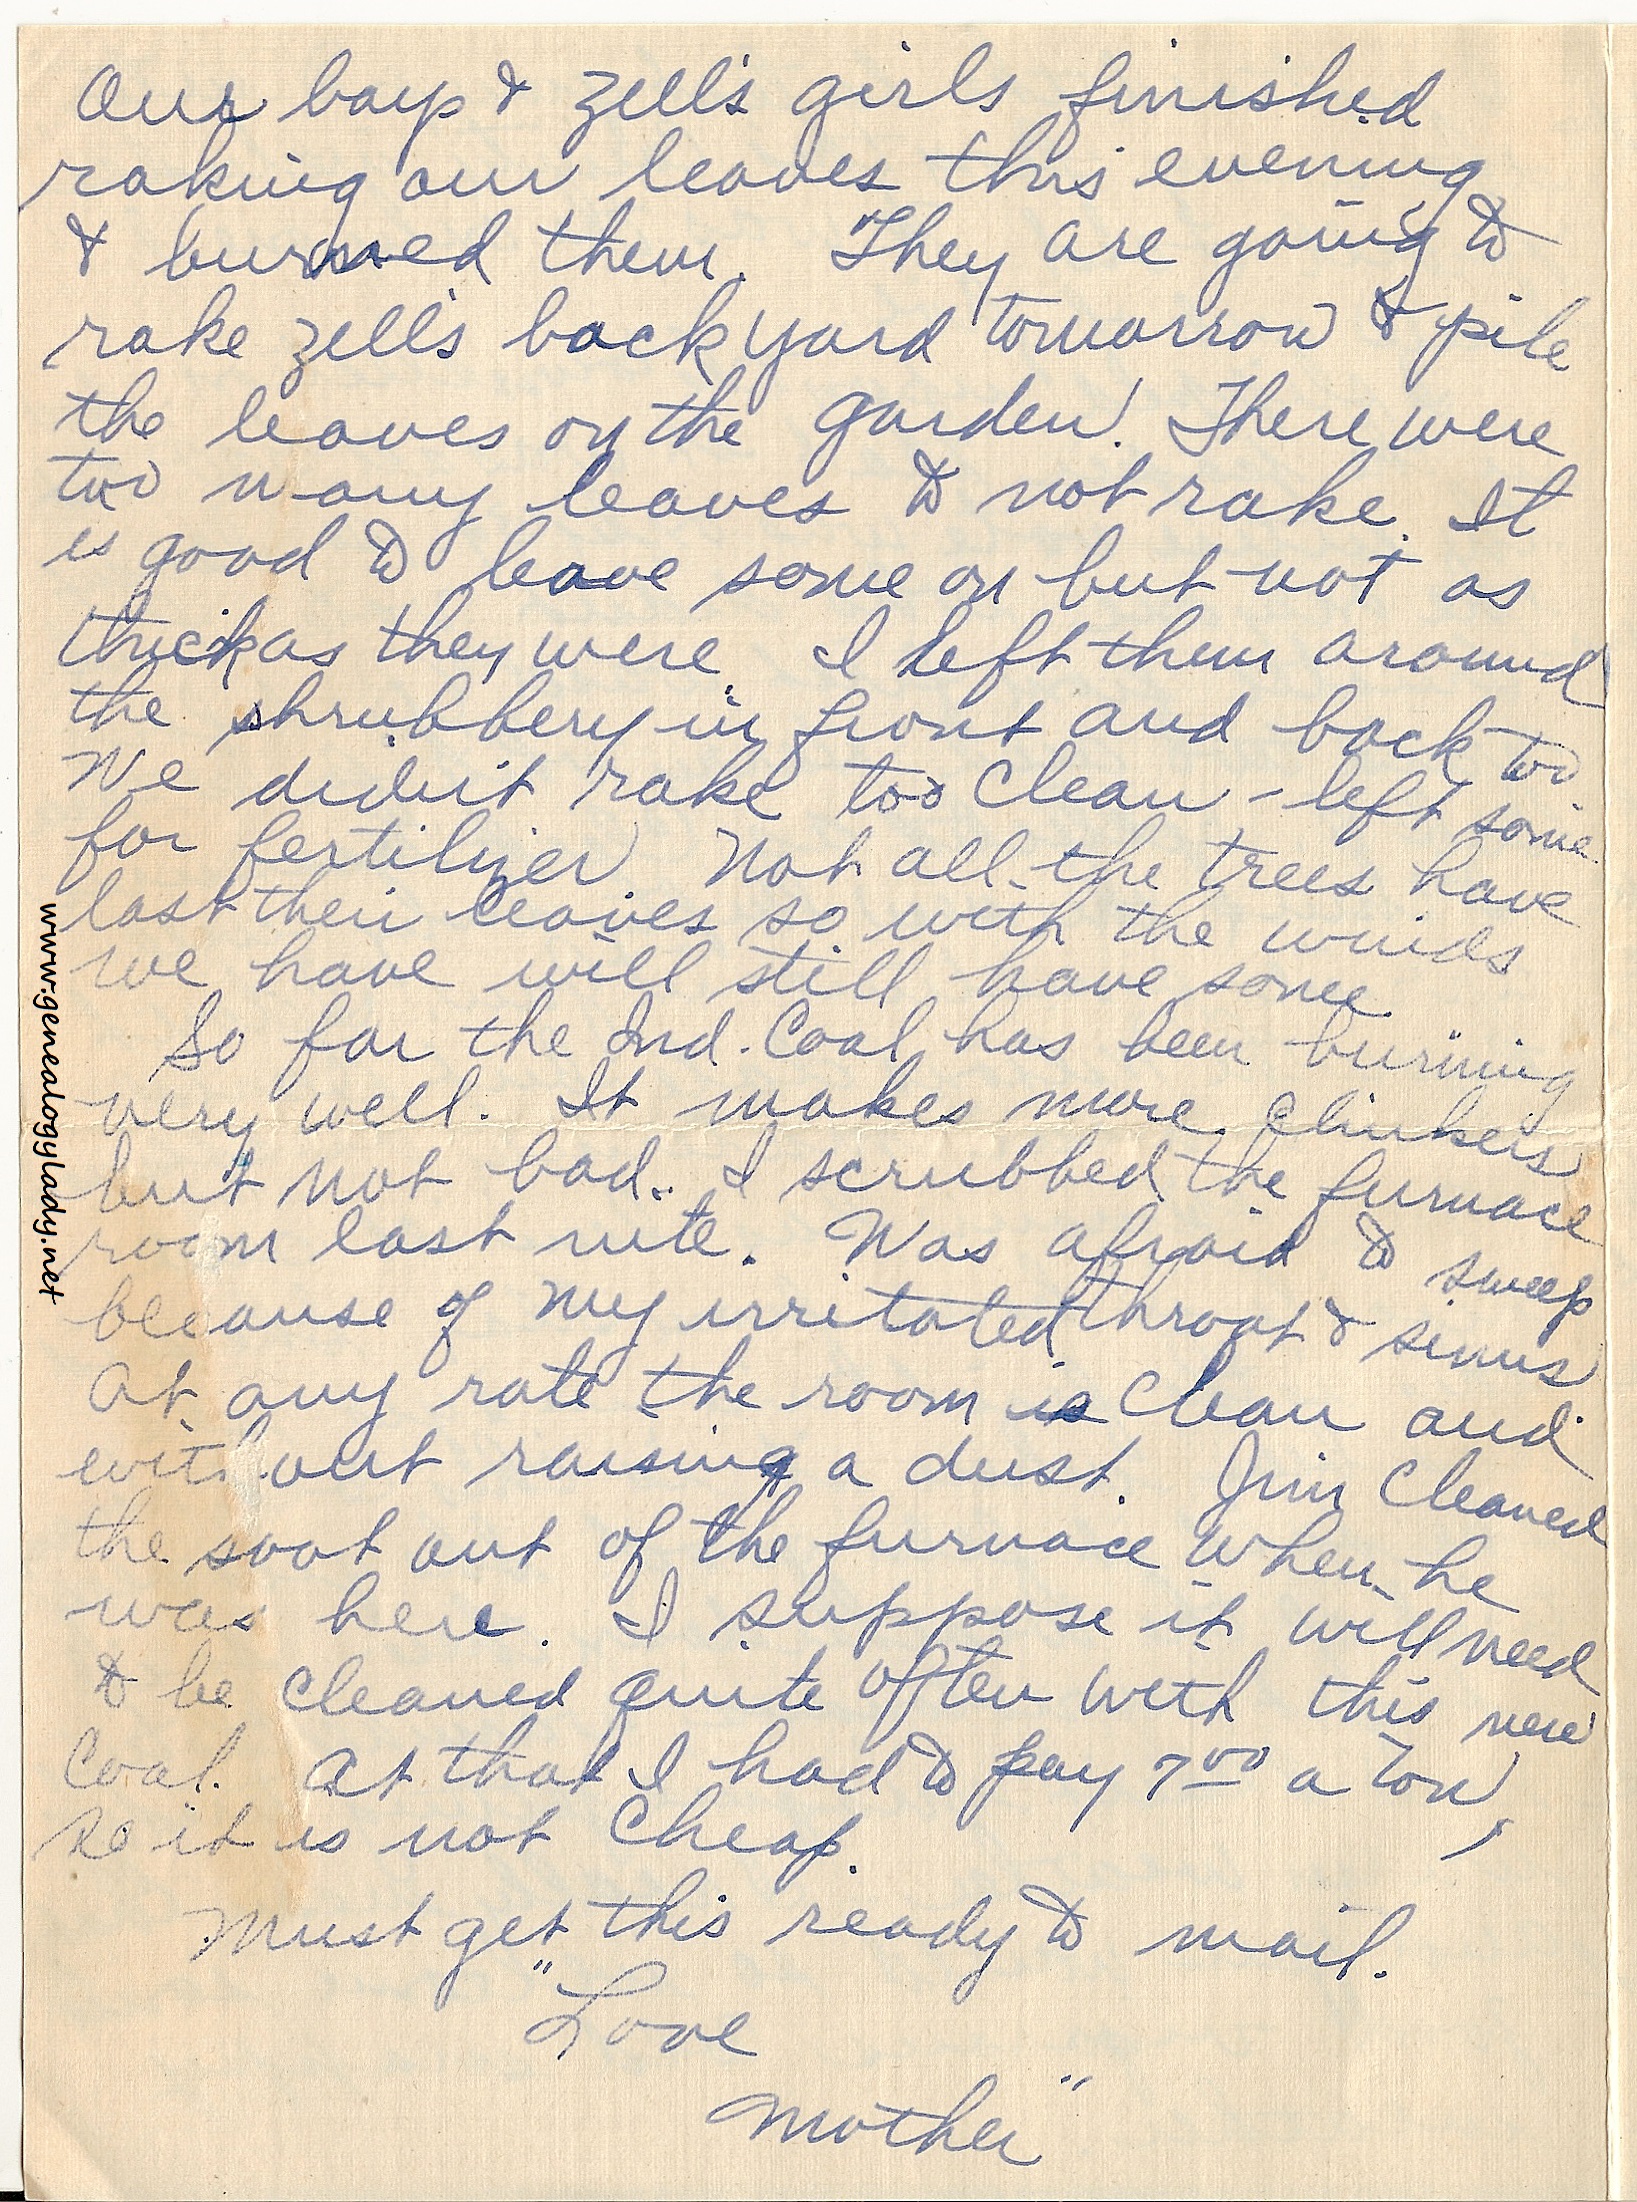 Our boys & Zell's girls finished
raking our leaves this evening
& burned them. They are going to
rake Zell's back yard tomorrow & pile
the leaves on the garden. There were
too many leaves to not rake. It
is good to leave some on but not as
thick as they were. I left them around
the shrubbery in front and back too.
We didn't rake too clean - left some
for fertilizer. Not all the trees have
lost their leaves so with the winds
we have will still have some.
So far the Ind. Coal has been burning
very well. It makes more clinkers
but not bad. I scrubbed the furnace
room last nite. Was afraid to sweep
because of my irritated throat & sinus
At any rate the room is clean and
without raising a dust. Jim cleaned
the soot out of the furnace when he
was here. I suppose it will need
to be cleaned quite often with this new
Coal. At that I had to pay 7.00 a ton,
so it is not cheap.
Must get this ready to mail.
"Love
Mother"
www.genealogylady.net